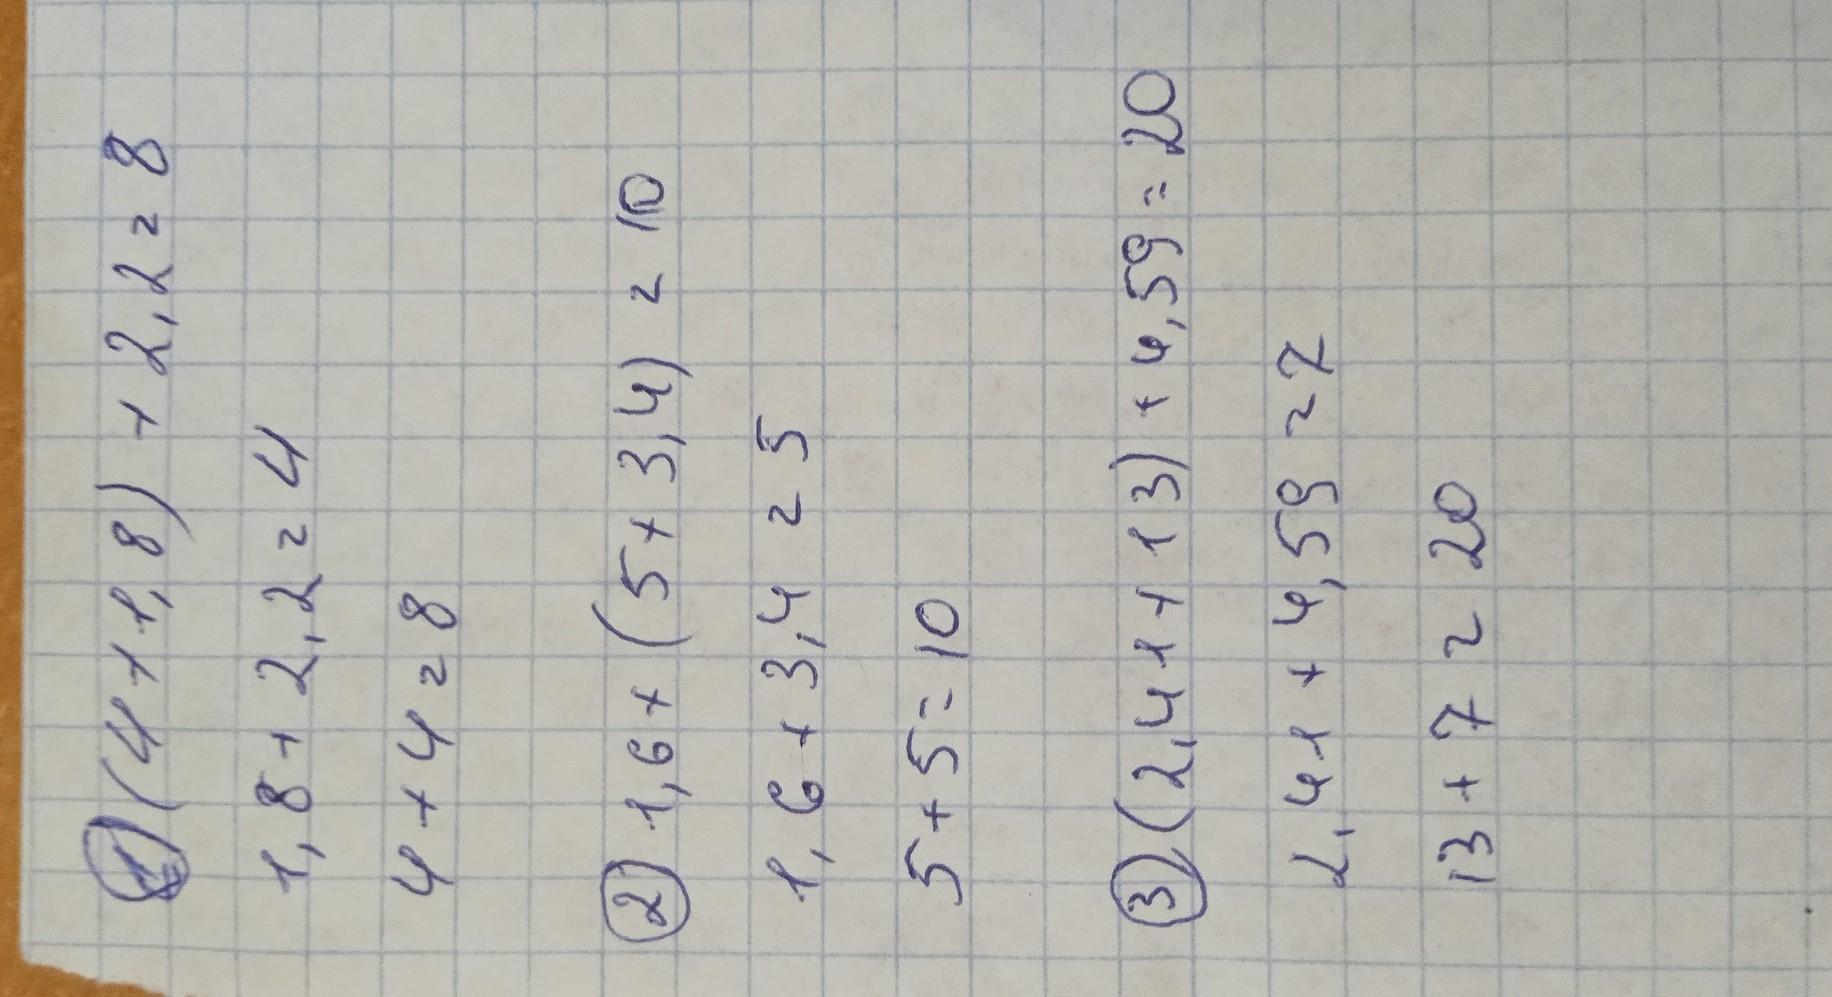 1) (4 + 1,8) + 2,2 = 8
1,8 + 2,2 = 4
4 + 4 = 8
2) 1,6 + (5 + 3,4) = 10
1,6 + 3,4 = 5
5 + 5 = 10
3) (2,41 + 13) + 4,59 = 20
2,41 + 4,59 = 7
13 + 7 = 20